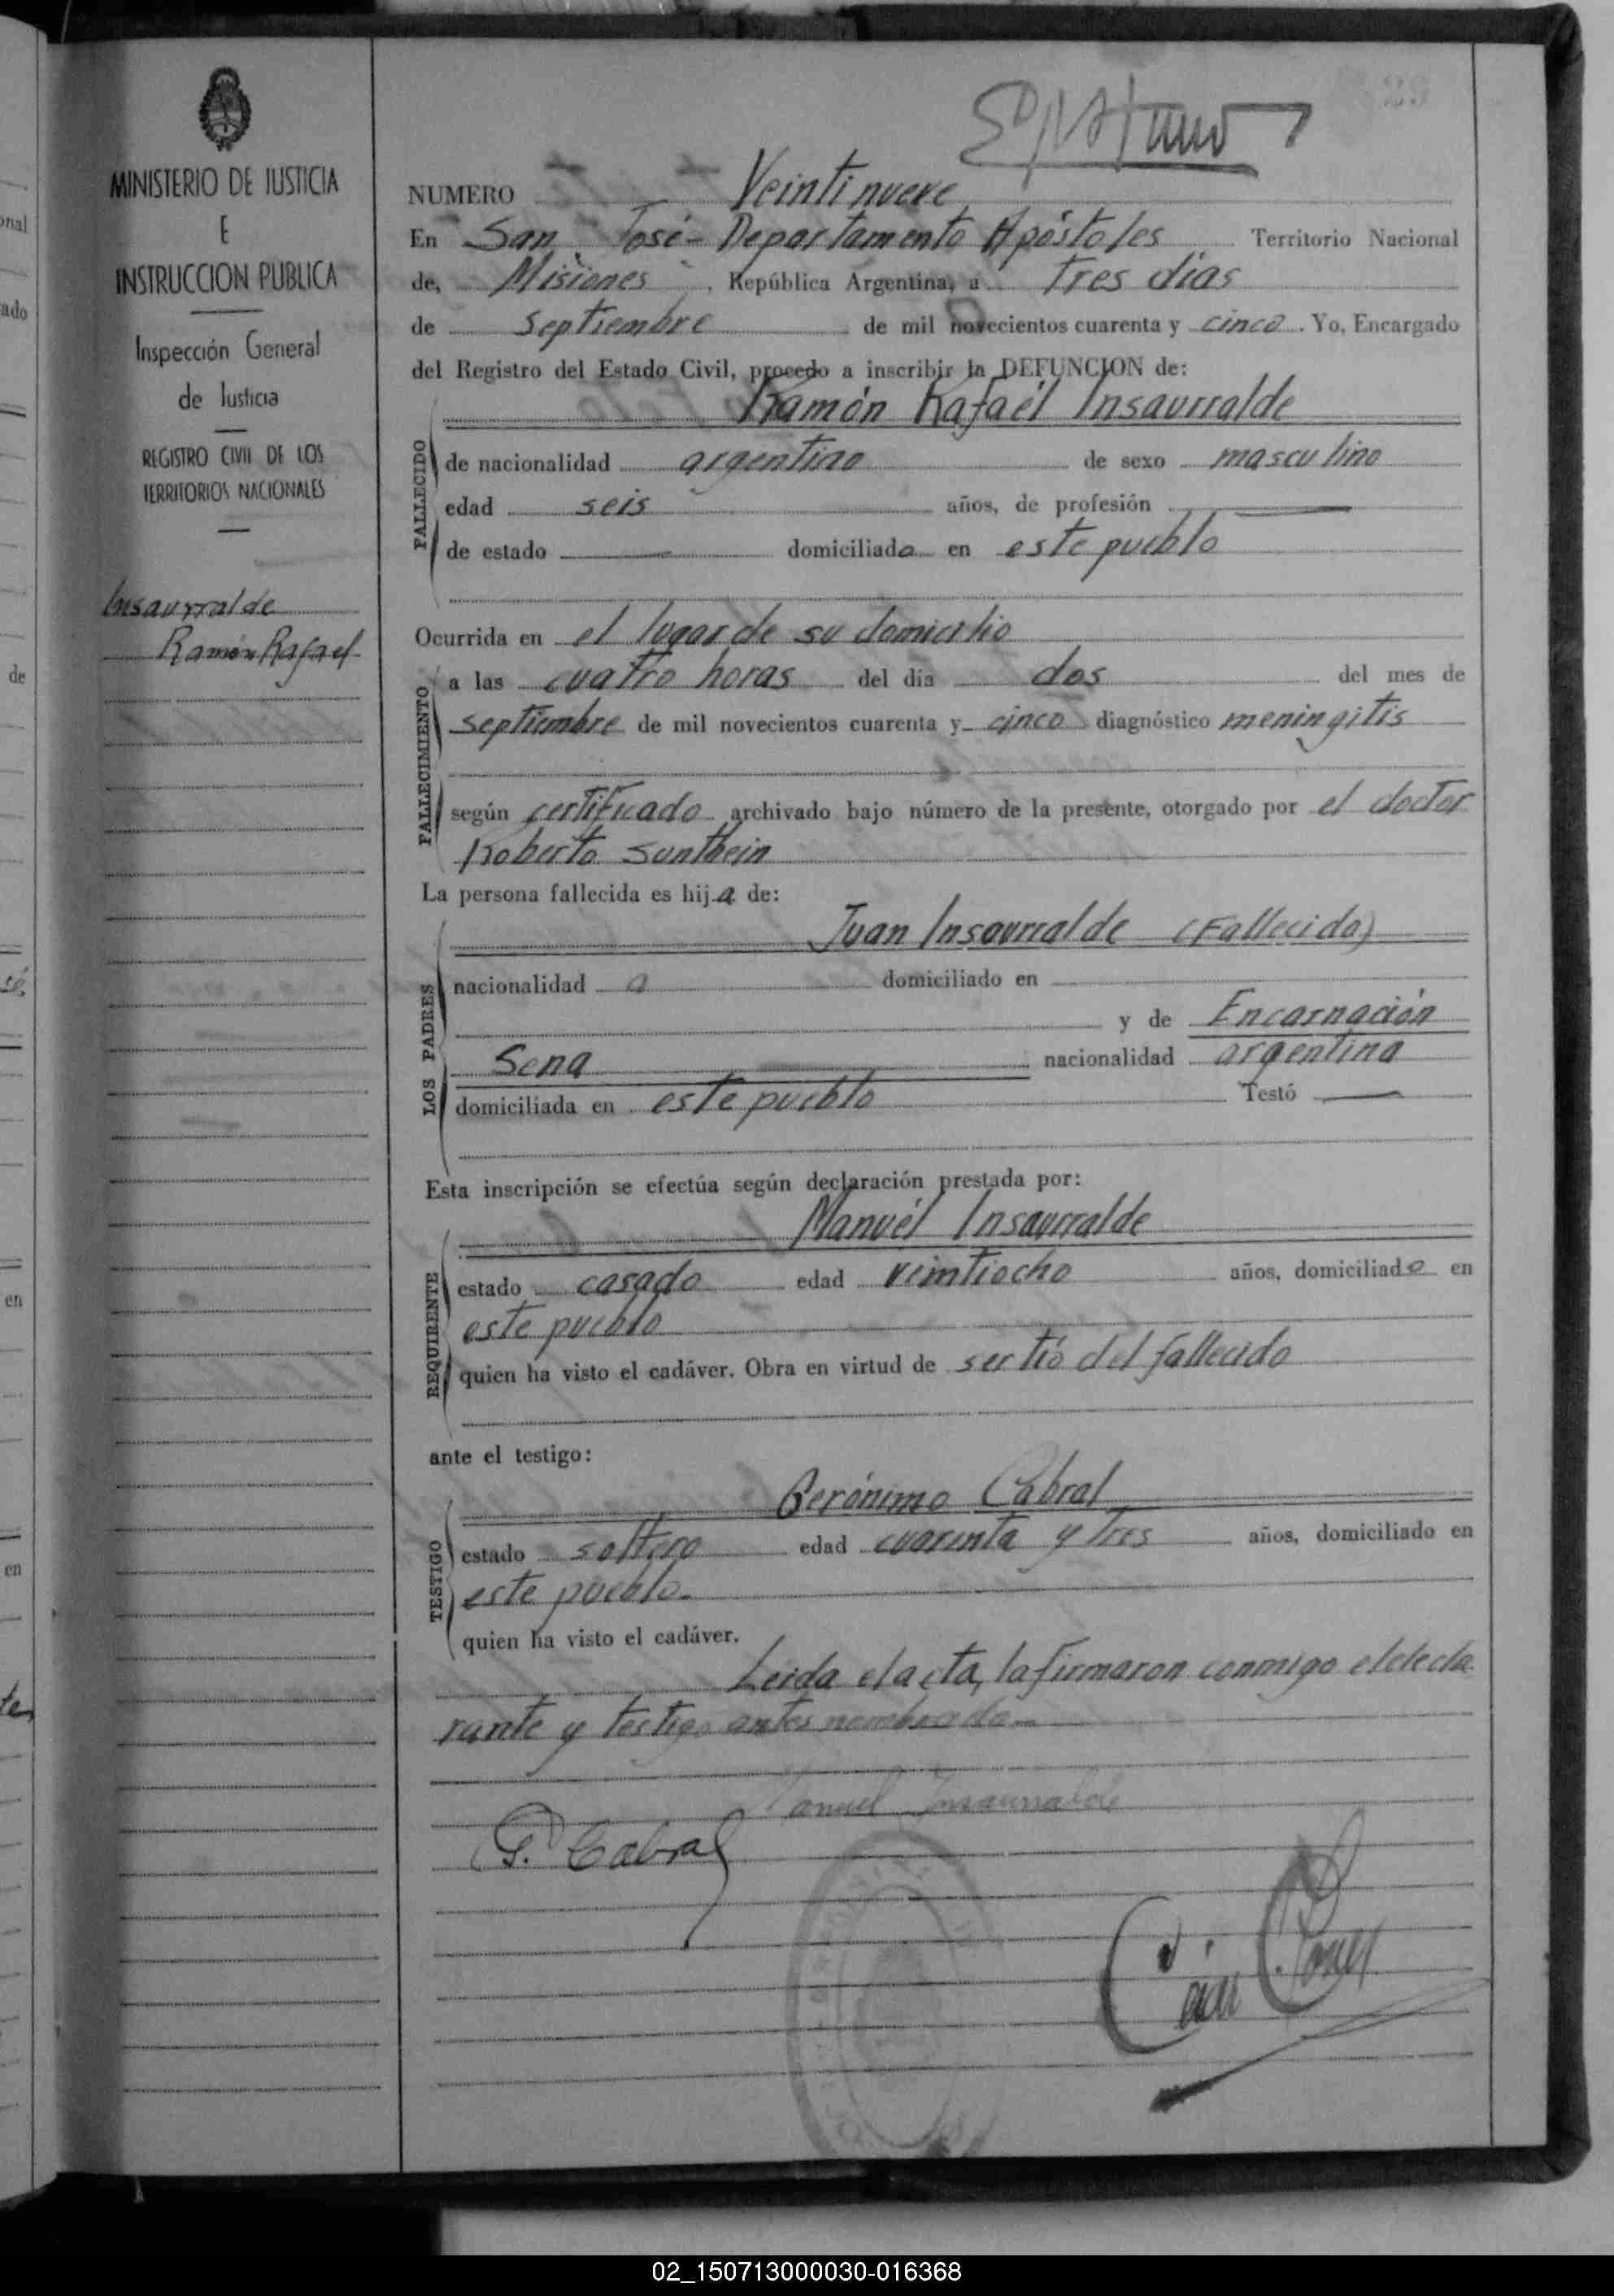 MINISTERIO DE JUSTICIA
E
INSTRUCCION PUBLICA
Inspección General
de Justicia
REGISTRO CIVIL DE LOS
TERRITORIOS NACIONALES
Insaurralde
Ramón Rafael
NUMERO Veintinueve
En San José - Departamento Apóstoles Territorio Nacional
de, Misiones, República Argentina, a tres días
de Septiembre de mil novecientos cuarenta y cinco. Yo, Encargado
del Registro del Estado Civil, procedo a inscribir la DEFUNCION de:
Ramón Rafaél Insaurralde
FALLECIDO
de nacionalidad argentino de sexo masculino
edad seis años, de profesión —
de estado — domiciliado en este pueblo
Ocurrida en el lugar de su domicilio
FALLECIMIENTO
a las cuatro horas del día dos del mes de
septiembre de mil novecientos cuarenta y cinco diagnóstico meningitis
según certificado archivado bajo número de la presente, otorgado por el doctor
Roberto
La persona fallecida es hija de:
Juan Insaurralde (Fallecido)
LOS PADRES
nacionalidad a domiciliado en
y de Encarnación
Sena nacionalidad argentina
domiciliada en este pueblo Testó —
Esta inscripción se efectúa según declaración prestada por:
Manuél Insaurralde
REQUIRENTE
estado casado edad veintiocho años, domiciliado en
este pueblo
quien ha visto el cadáver. Obra en virtud de ser tío del fallecido
ante el testigo:
Gerónimo Cabral
TESTIGO
estado soltero edad cuarenta y tres años, domiciliado en
este pueblo.
quien ha visto el cadáver.
Leida el acta, la firmaron conmigo el decla
rante y testigo antes nombrado—
Manuel Insaurralde
G. Cabral
02_150713000030-016368